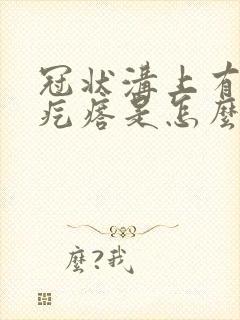 冠状溝上有
疙瘩是怎麼
麼?我